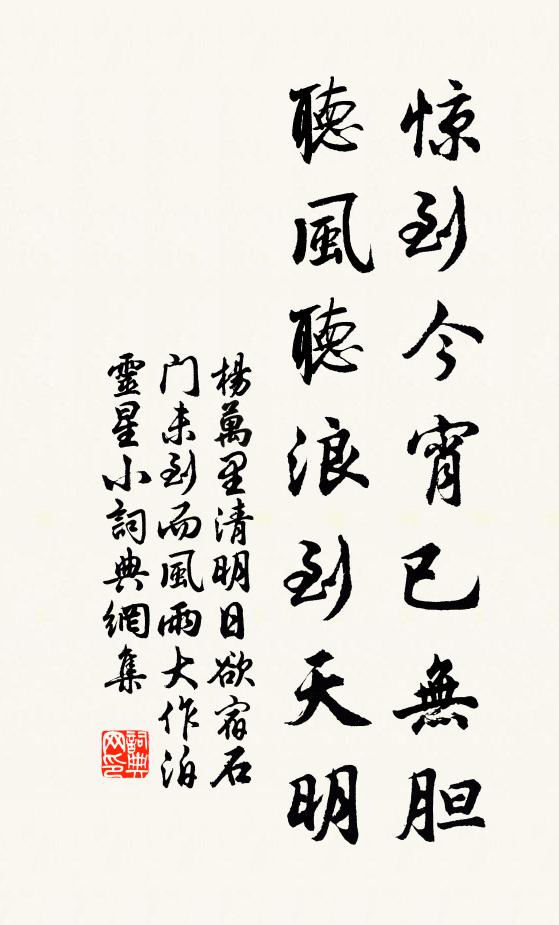 惊到今宵已無胆
聽風聽浪到天明
楊萬里清明日欲宿石
门未到而風雨大作泊
靈星小詞典網集
詞典网印